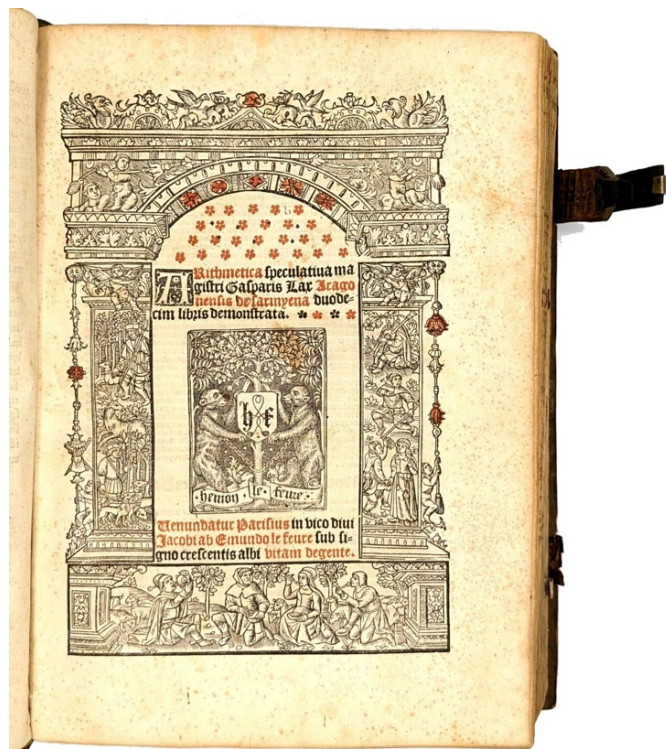 ARithmetica speculatiua ma
gistri Gasparis Lax Arago
nensis de sarinyena duode-
cim libris demonstrata.
h f
hemon le feure
Uenundatur Parisius in vico diui
Jacobi ab Emundo le feure sub si-
gno crescentis albi vitam degente.